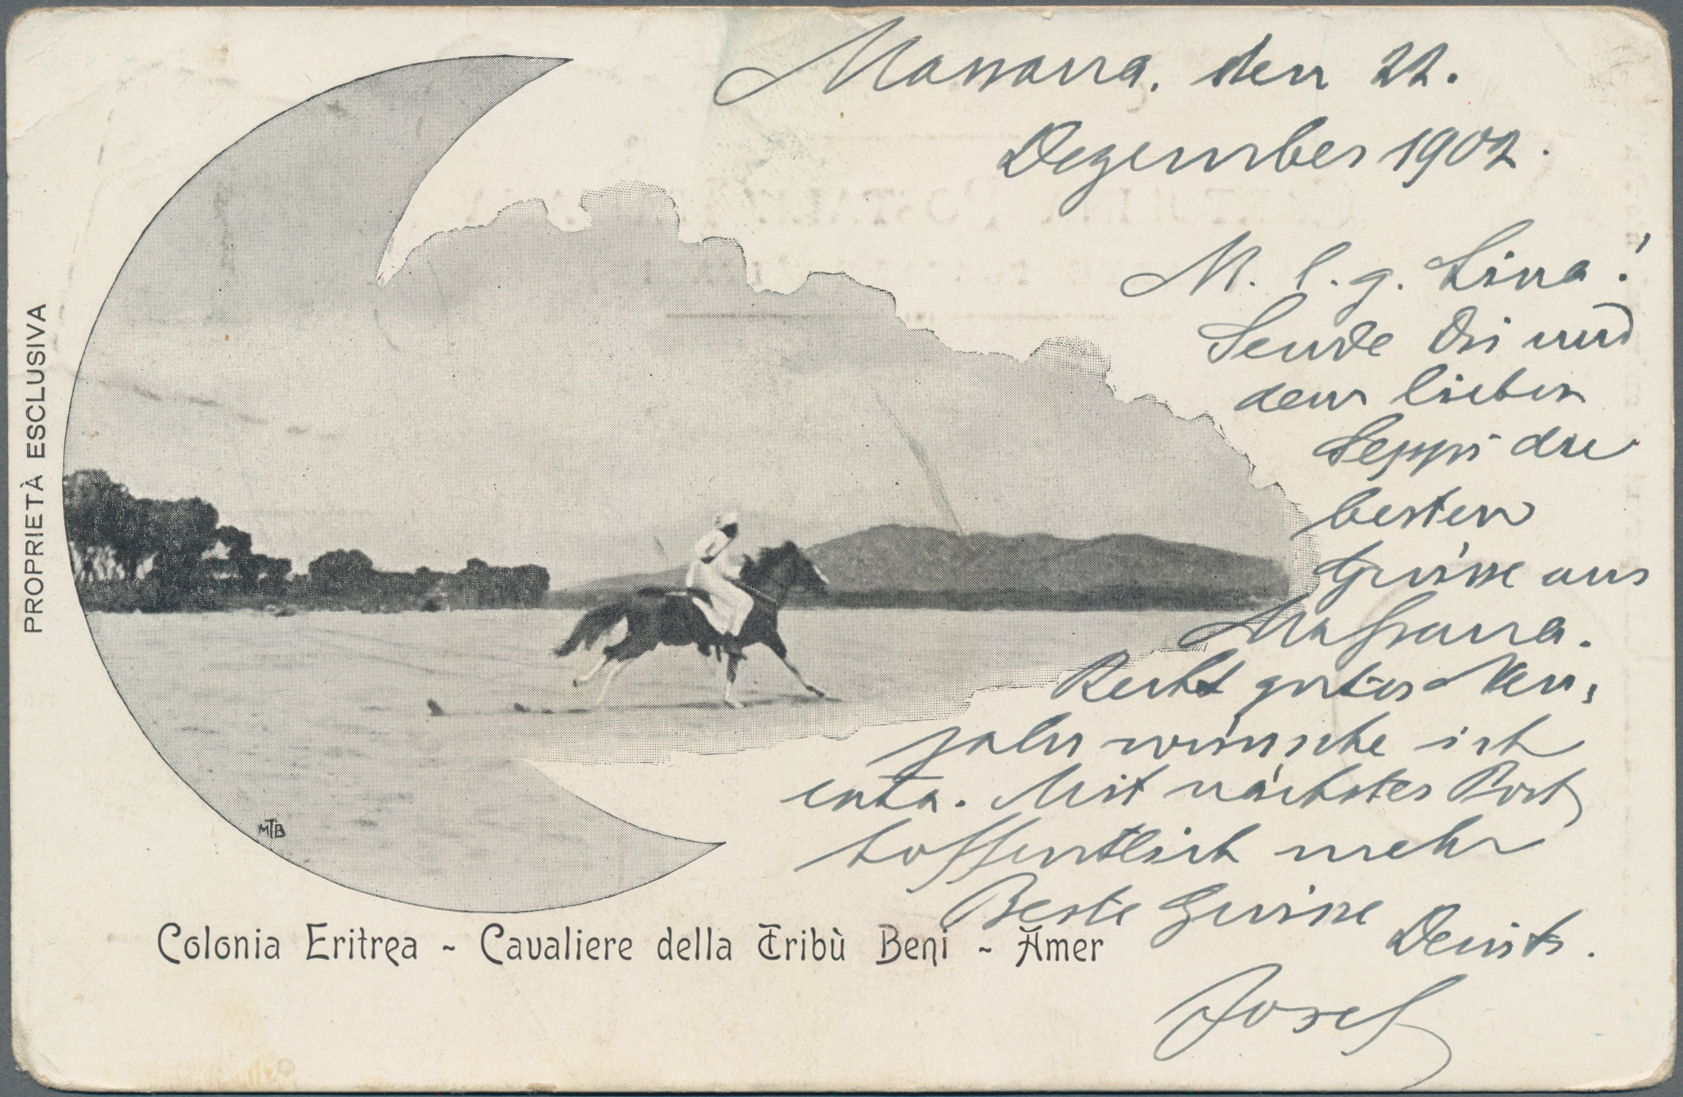 Massaua, den 22.
Dezember 1902.
M. l. g. Lina!
Sende Dir und
dem lieben
Seppi die
besten
Grüsse aus
Massaua.
Recht gutes Neu-
jahr wünsche ich
Mit nächster Post
hoffentlich mehr
Beste Grüsse
Josef
PROPRIETÀ ESCLUSIVA
MTB
Colonia Eritrea ~ Cavaliere della Tribù Beni ~ Amer